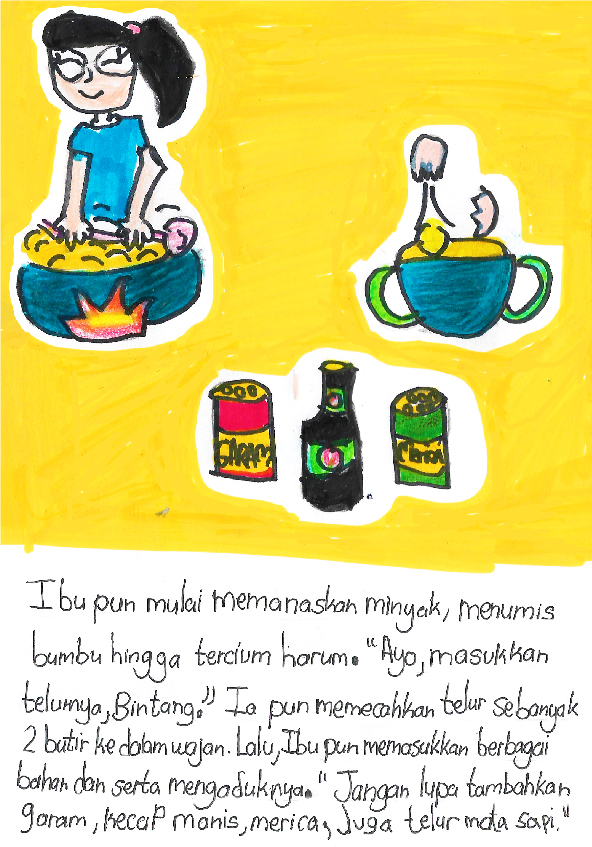 GARAM
Merica
Ibu pun mulai memanaskan minyak, menumis
bumbu hingga tercium harum. "Ayo, masukkan
telurnya, Bintang." Ia pun memecahkan telur sebanyak
2 butir ke dalam wajan. Lalu, Ibu pun memasukkan berbagai
bahan dan serta mengaduknya. "Jangan lupa tambahkan
garam, kecap manis, merica, juga telur mata sapi."